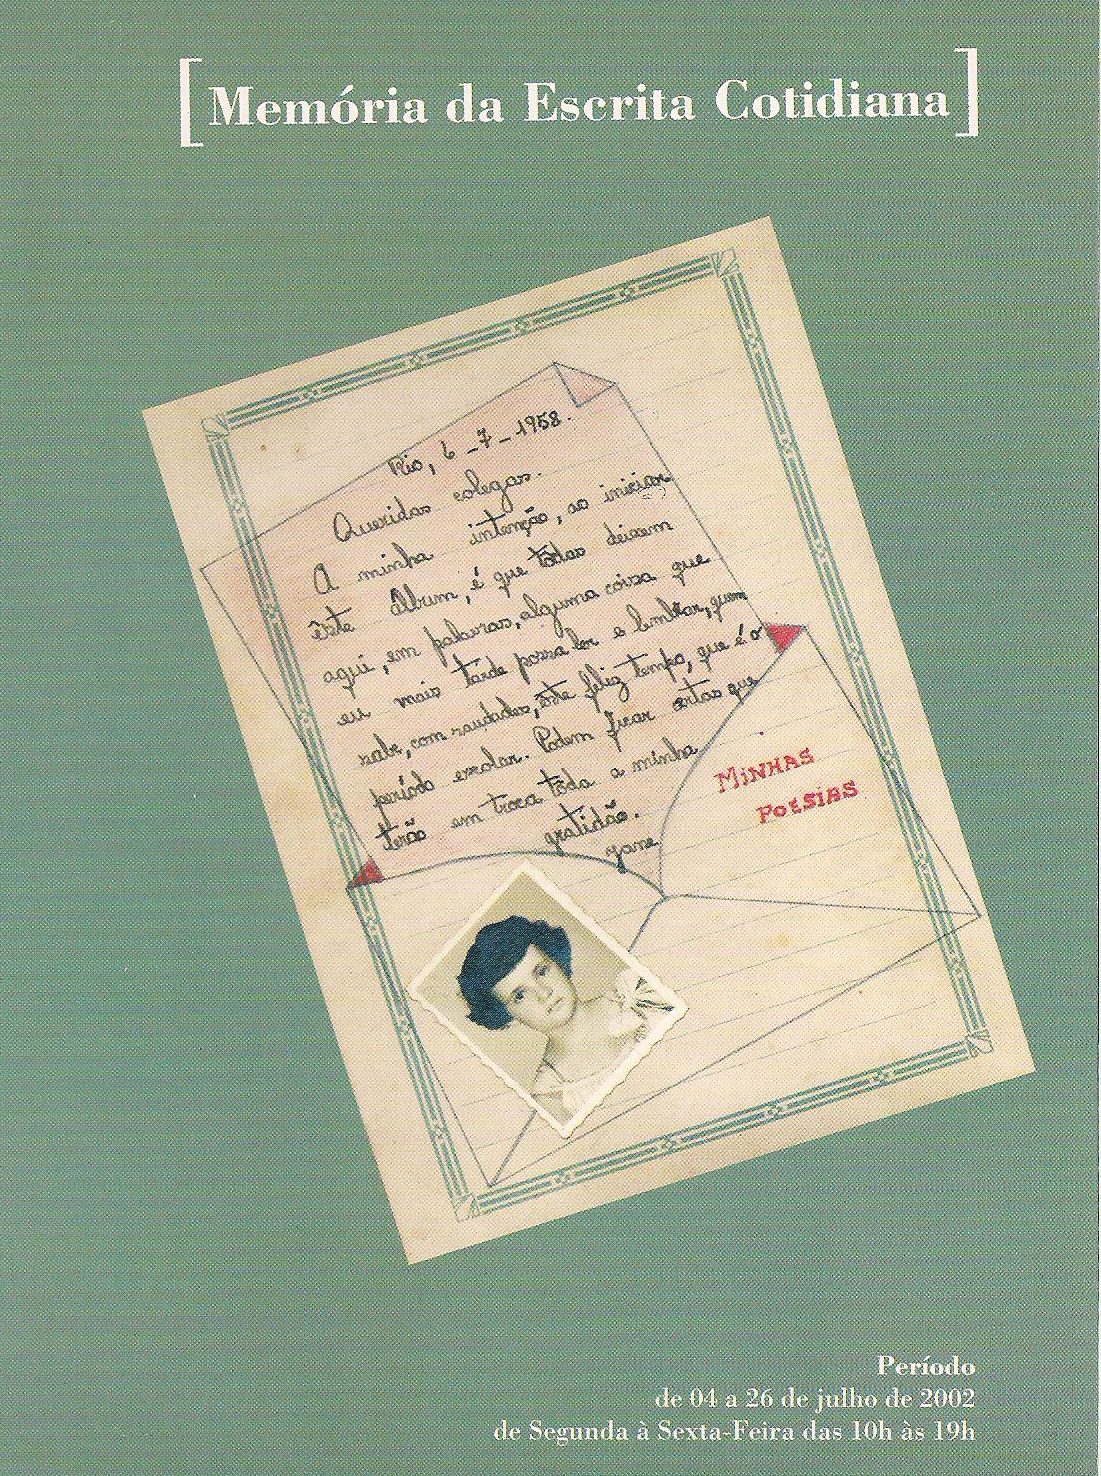 [Memória da Escrita Cotidiana]
Rio, 6_7_1958.
Queridas colegas.
A minha intenção, ao iniciar
êste álbum, é que tôdas deixem
aqui, em palavras, alguma coisa que
eu mais tarde possa ler e lembrar, quem
sabe, com saudades, êste feliz tempo, que é o
período escolar. Podem ficar certas que
terão em troca tôda a minha
gratidão.
Yane
MiNHAS
POESIAS
Período
de 04 a 26 de julho de 2002
de Segunda à Sexta-Feira das 10h às 19h